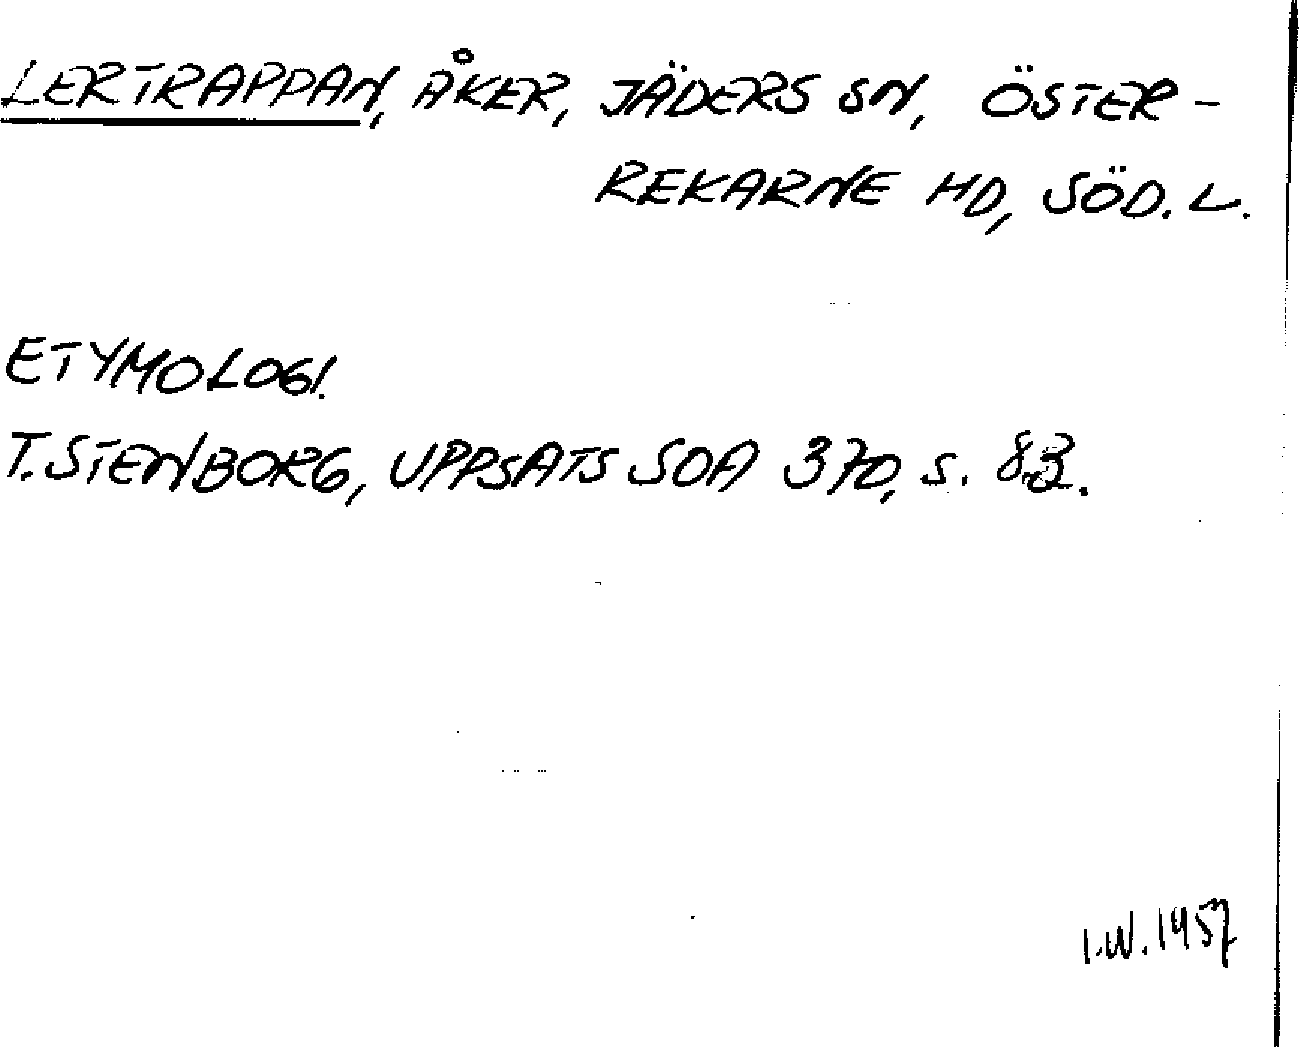 LERTRAPPAN, ÅKER, JÄDERS SN, ÖSTER-
REKARNE HD, SÖD. L.
ETYMOLOGI.
T. STENBORG, UPPSATS SOA 370, S. 83.
I.W. 1957